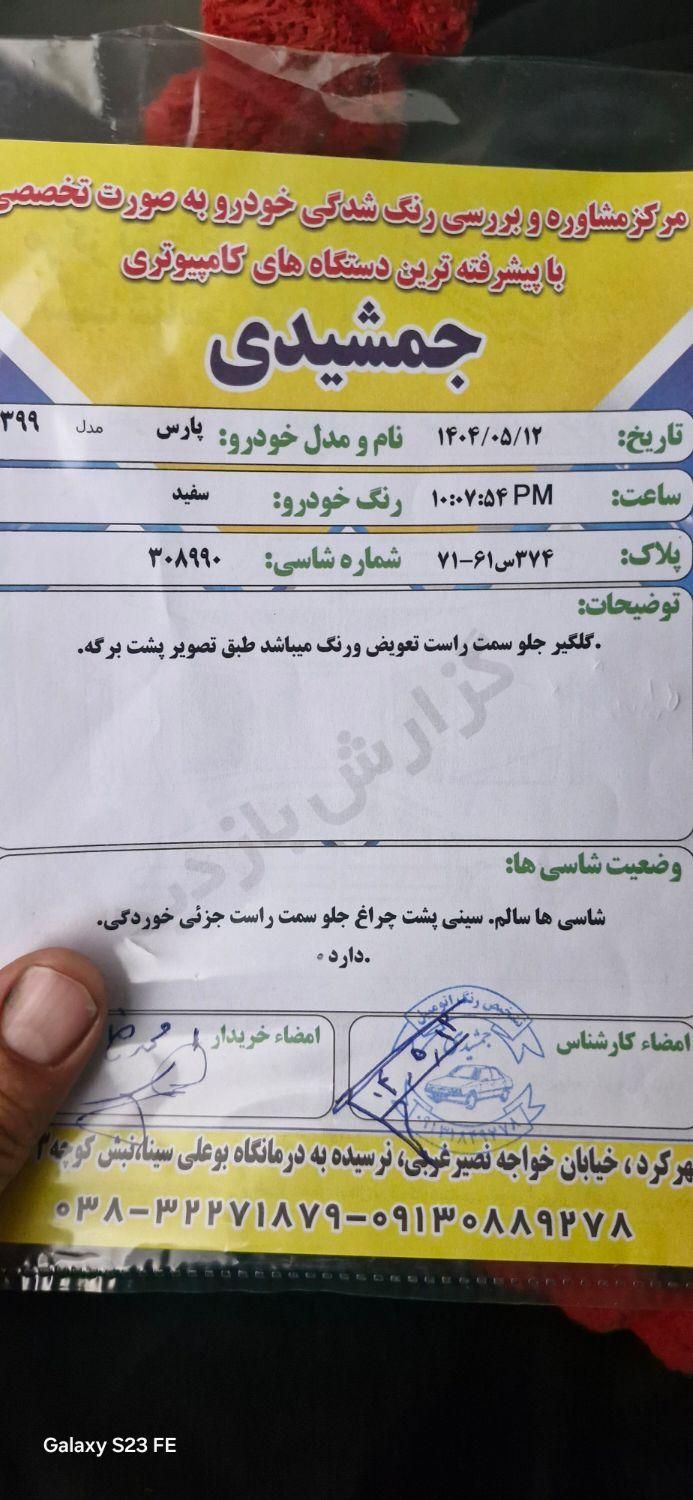 مرکز مشاوره و بررسی رنگ شدگی خودرو به صورت تخصصی
با پیشرفته ترین دستگاه های کامپیوتری
جمشیدی
تاریخ: ۱۴۰۴/۰۵/۱۲ نام و مدل خودرو: پارس مدل ۳۹۹
ساعت: ۱۰:۰۷:۵۴ PM رنگ خودرو: سفید
پلاک: ۳۷۴س۶۱-۷۱ شماره شاسی: ۳۰۸۹۹۰
توضیحات:
.گلگیر جلو سمت راست تعویض ورنگ میباشد طبق تصویر پشت برگه.
گزارش بازد
وضعیت شاسی ها:
شاسی ها سالم. سینی پشت چراغ جلو سمت راست جزئی خوردگی.
.دارد
امضاء کارشناس
امضاء خریدار
تشخیص رنگ اتومبیل
جمشیدی
هرکرد ، خیابان خواجه نصیر غربی، نرسیده به درمانگاه بوعلی سینا،نبش کوچه
۰۳۸-۳۲۲۷۱۸۷۹-۰۹۱۳۰۸۸۹۲۷۸
Galaxy S23 FE